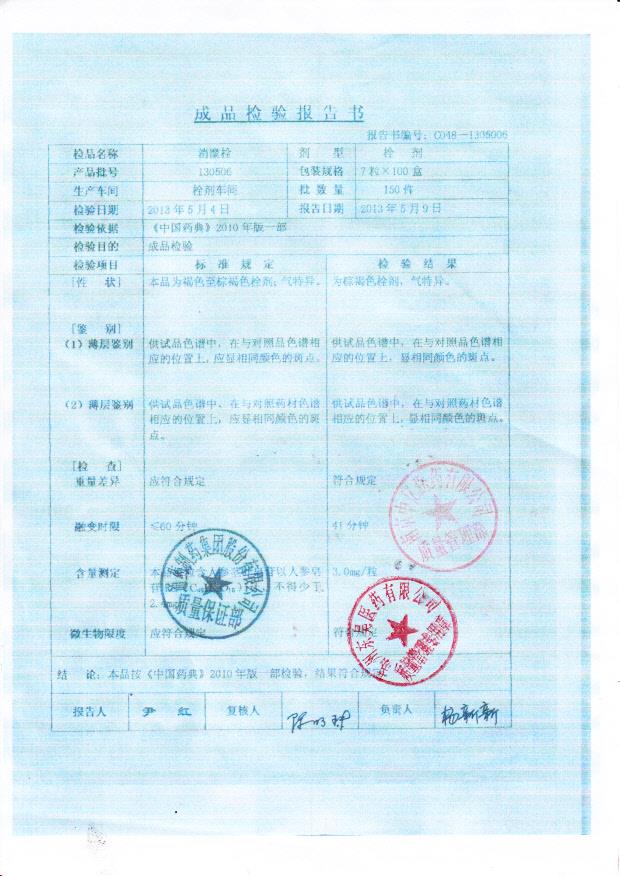 成品检验报告书
报告书编号：C048－1305006
检品名称 消糜栓 剂 型 栓 剂
产品批号 130506 包装规格 7粒×100盒
生产车间 栓剂车间 批 数 量 150件
检验日期 2013年5月4日 报告日期 2013年5月9日
检验依据 《中国药典》2010年版一部
检验目的 成品检验
检验项目 标 准 规 定 检 验 结 果
[性 状] 本品为褐色至棕褐色栓剂；气特异。 为棕褐色栓剂，气特异。
[鉴 别]
（1）薄层鉴别 供试品色谱中，在与对照品色谱相 供试品色谱中，在与对照品色谱相
应的位置上，应显相同颜色的斑点。 应的位置上，显相同颜色的斑点。
（2）薄层鉴别 供试品色谱中，在与对照药材色谱 供试品色谱中，在与对照药材色谱
相应的位置上，应显相同颜色的斑 相应的位置上，显相同颜色的斑点。
点。
[检 查]
重量差异 应符合规定 符合规定
融变时限 ≤60分钟 41分钟
含量测定 本 含人参 以人参皂 3.0mg/粒
不得少于
2.
微生物限度 应符合规定 符合规定
结 论：本品按《中国药典》2010年版一部检验，结果符合规定
报告人 尹 红 复核人 负责人 杨新新
制药集团股份有限公司
质量保证部
医药有限公司
质量管理部
州东吴医药有限公司